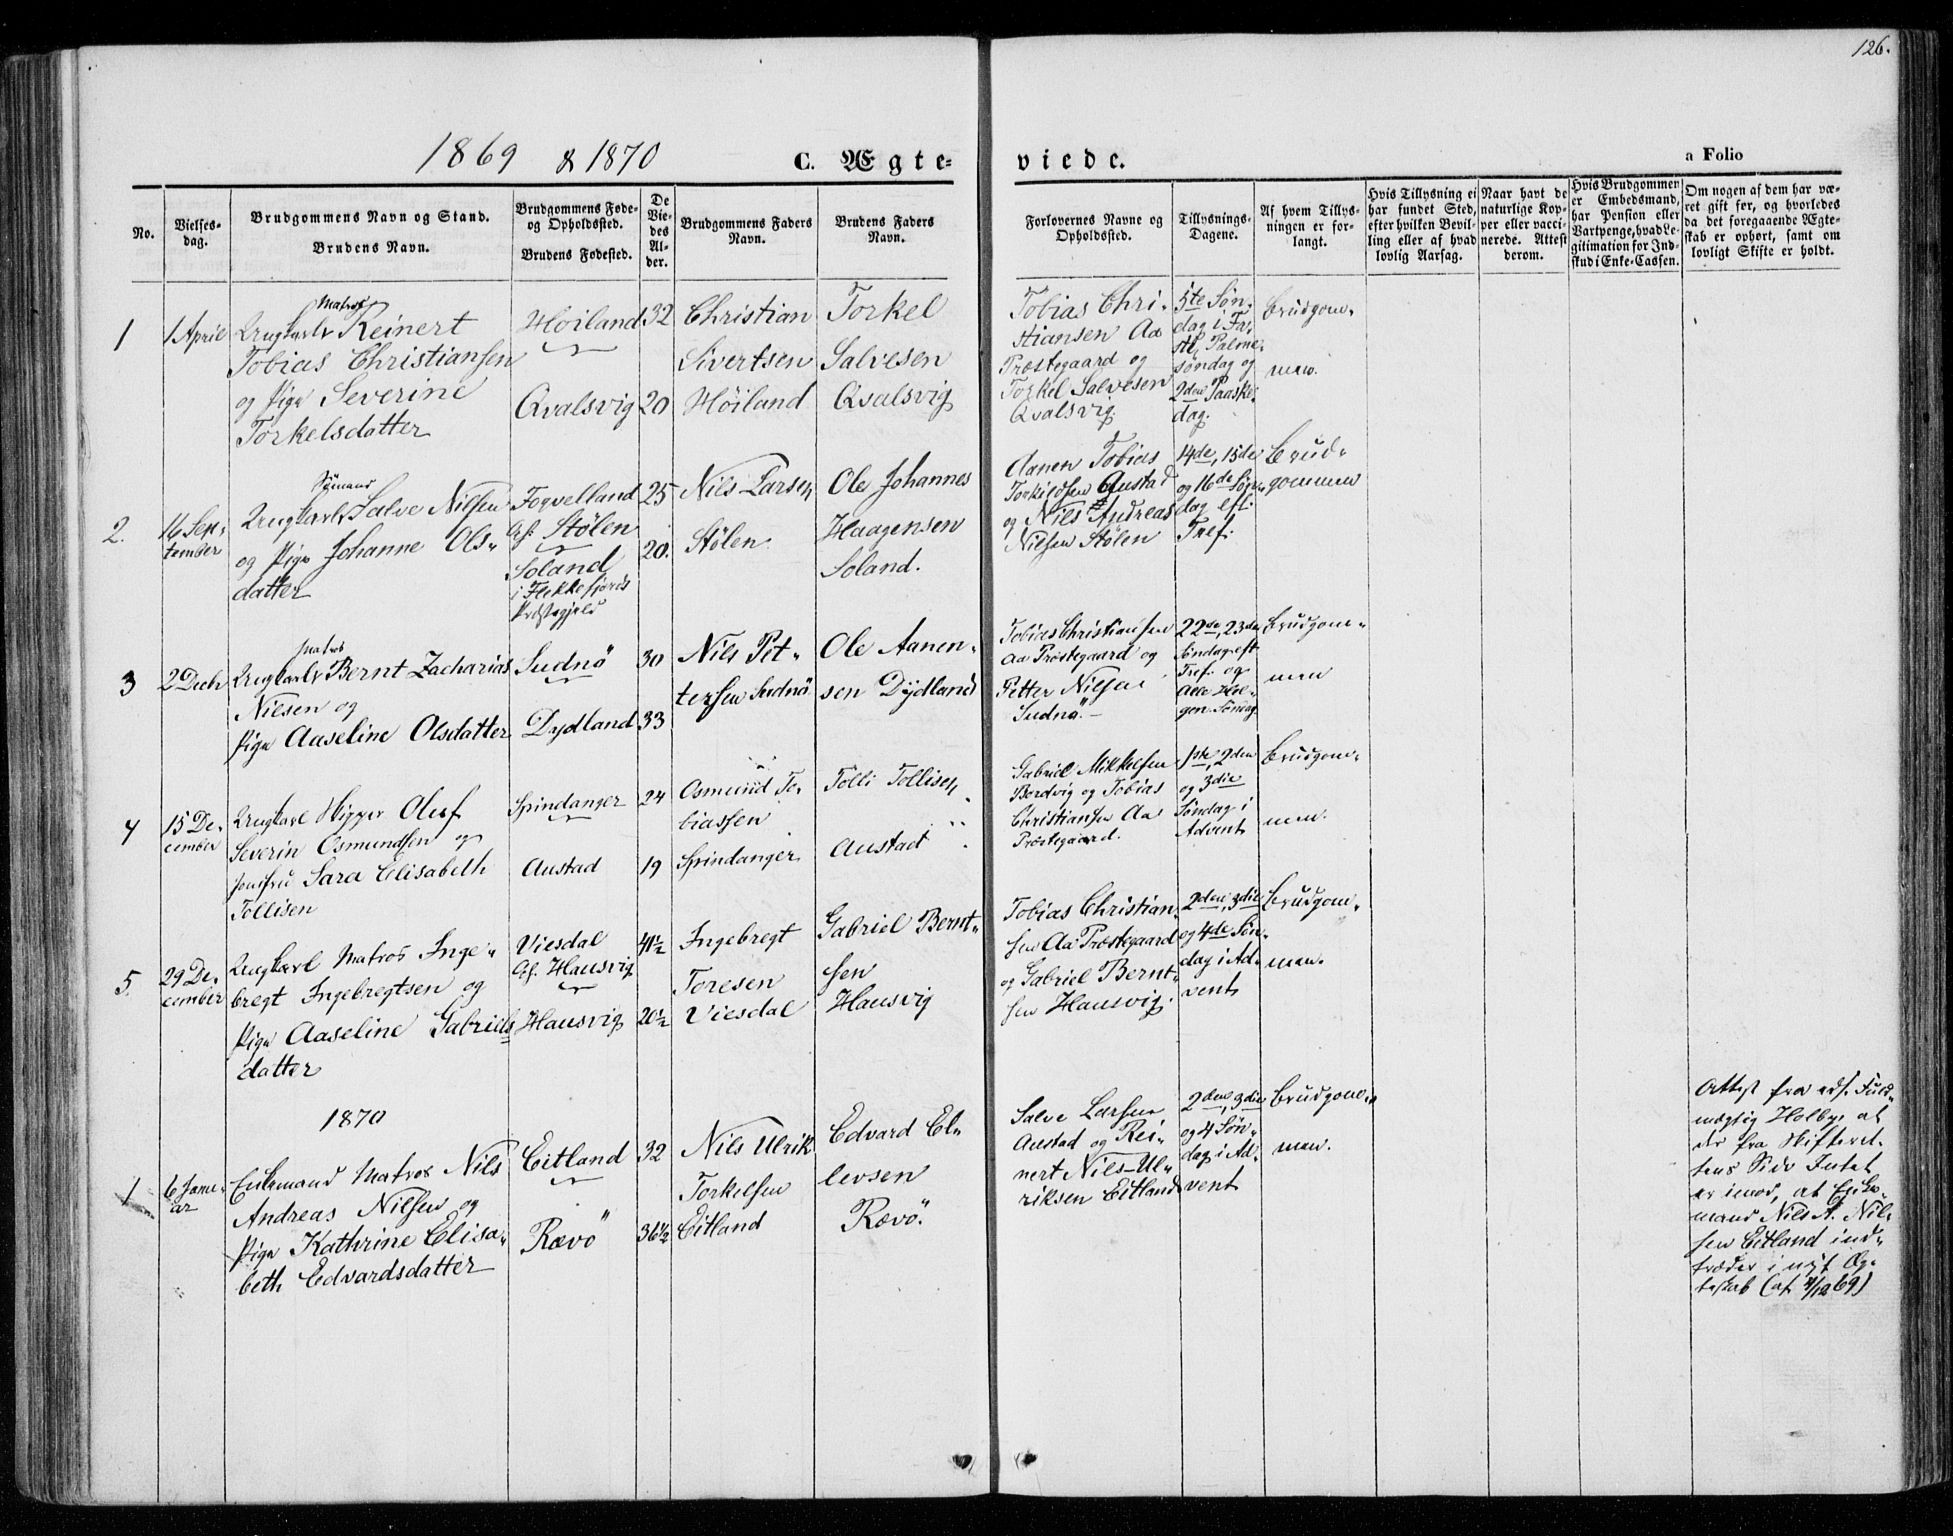 126.
1869 & 1870
C. Ægte=
viede.
a Folio
No.
Vielses-
dag.
Brudgommens Navn og Stand.
Brudens Navn.
Brudgommens Føde-
og Opholdssted.
Brudens Fødested.
De
Vie-
des
Al-
der.
Brudgommens Faders
Navn.
Brudens Faders
Navn.
Forlovernes Navne og
Opholdssted.
Tillysnings-
Dagene.
Af hvem Tillys-
ningen er for-
langt.
Hvis Tillysning ei
har fundet Sted,
efter hvilken Bevil-
ling eller af hvad
lovlig Aarsag.
Naar havt de
naturlige Kop-
per eller vacci-
nerede. Attest
derom.
Hvis Brudgommen
er Embedsmand,
har Pension eller
Vartpenge, hvad Le-
gitimation for Ind-
skud i Enke-Cassen.
Om nogen af dem har væ-
ret gift før, og hvorledes
da det foregaaende Ægte-
skab er ophørt, samt om
lovligt Skifte er holdt.
1
1 April
Matros
Ungkarl Reinert
Tobias Christiansen
og Pige Severine
Torkelsdatter
Høiland
Qvalsvig
32
20
Christian
Sivertsen
Høiland
Torkel
Salvesen
Qvalsvig
Tobias Chri-
stiansen Aa
Præstegaard og
Torkel Salvesen
Qvalsvig
5te Søn-
dag i Fa-
ste, Palme-
søndag og
2den Paaske-
dag.
Brudgom-
men.
2.
16 Sep-
tember
Sømand
Ungkarl Salve Nilsen
og Pige Johanne Ols-
datter
Fogvelland
Gf. Stølen
Soland
i Flekkefjords
Præstegjeld
25
20.
Nils Larsen
Stølen
Ole Johannes
Haagensen
Soland.
Aanen Tobias
Torkildsen Austad
og Nils Andreas
Nilsen Stølen
14de, 15de
og 16de Søn-
dag eft.
Tref.
Brud-
gommen
3
2 Decbr
Matros
Ungkarl Bernt Zacharias
Nilsen og
Pige Aaseline Olsdatter
Sudnø
Dydland
30
33
Nils Pit-
tersen Sudnø
Ole Aanen-
sen Dydland
Tobias Christiansen
Aa Præstegaard og
Petter Nilsen
Sudnø.-
22de, 23de
Søndag eft
Tref. og
Alle Hel-
gen. Søndag
Brudgom-
men
4
15 De-
cember
Ungkarl Skipper Oluf
Severin Osmundsen og
Jomfru Sara Elisabeth
Tollisen
Spindanger
Austad
24
19
Osmund To-
biassen
Spindanger
Tolli Tollisen
Austad
Gabriel Mikkelsen
Bordvig og Tobias
Christiansen Aa
Præstegaard.
1ste, 2den
og 3die
Søndag i
Advent
Brudgom-
men.
5.
29 De-
cember
Ungkarl Matros Inge-
bregt Ingebregtsen og
Pige Aaseline Gabriels
datter
Viesdal
Gf. Hausvig
Hausvig
41½
20½
Ingebregt
Toresen
Viesdal
Gabriel Bernt-
sen
Hausvig
Tobias Christian-
sen Aa Præstegaard
og Gabriel Bernt-
sen Hausvig.
2den, 3die
og 4de Søn-
dag i Ad-
vent
Brudgom-
men.
1870
1
6 Janu-
ar
Enkemand Matros Nils
Andreas Nilsen og
Pige Kathrine Elisa-
beth Edvardsdatter
Eitland
Rævø
32
36½
Nils Ulrik
Torkelsen
Eitland
Edvard El-
levsen
Rævø.
Salve Larsen
Austad og Rei-
nert Nils-Ul-
riksen Eitland
2den, 3die
og 4 Søn-
dag i Ad-
vent
Brudgom-
men.
Attest fra edsf. Fuld-
mægtig Holby, at
der fra Skifteret-
tens Side Intet
er imod, at Enke-
mand Nils A. Nil-
sen Eitland ind-
træder i nyt Æg-
teskab (af 4/12 69)